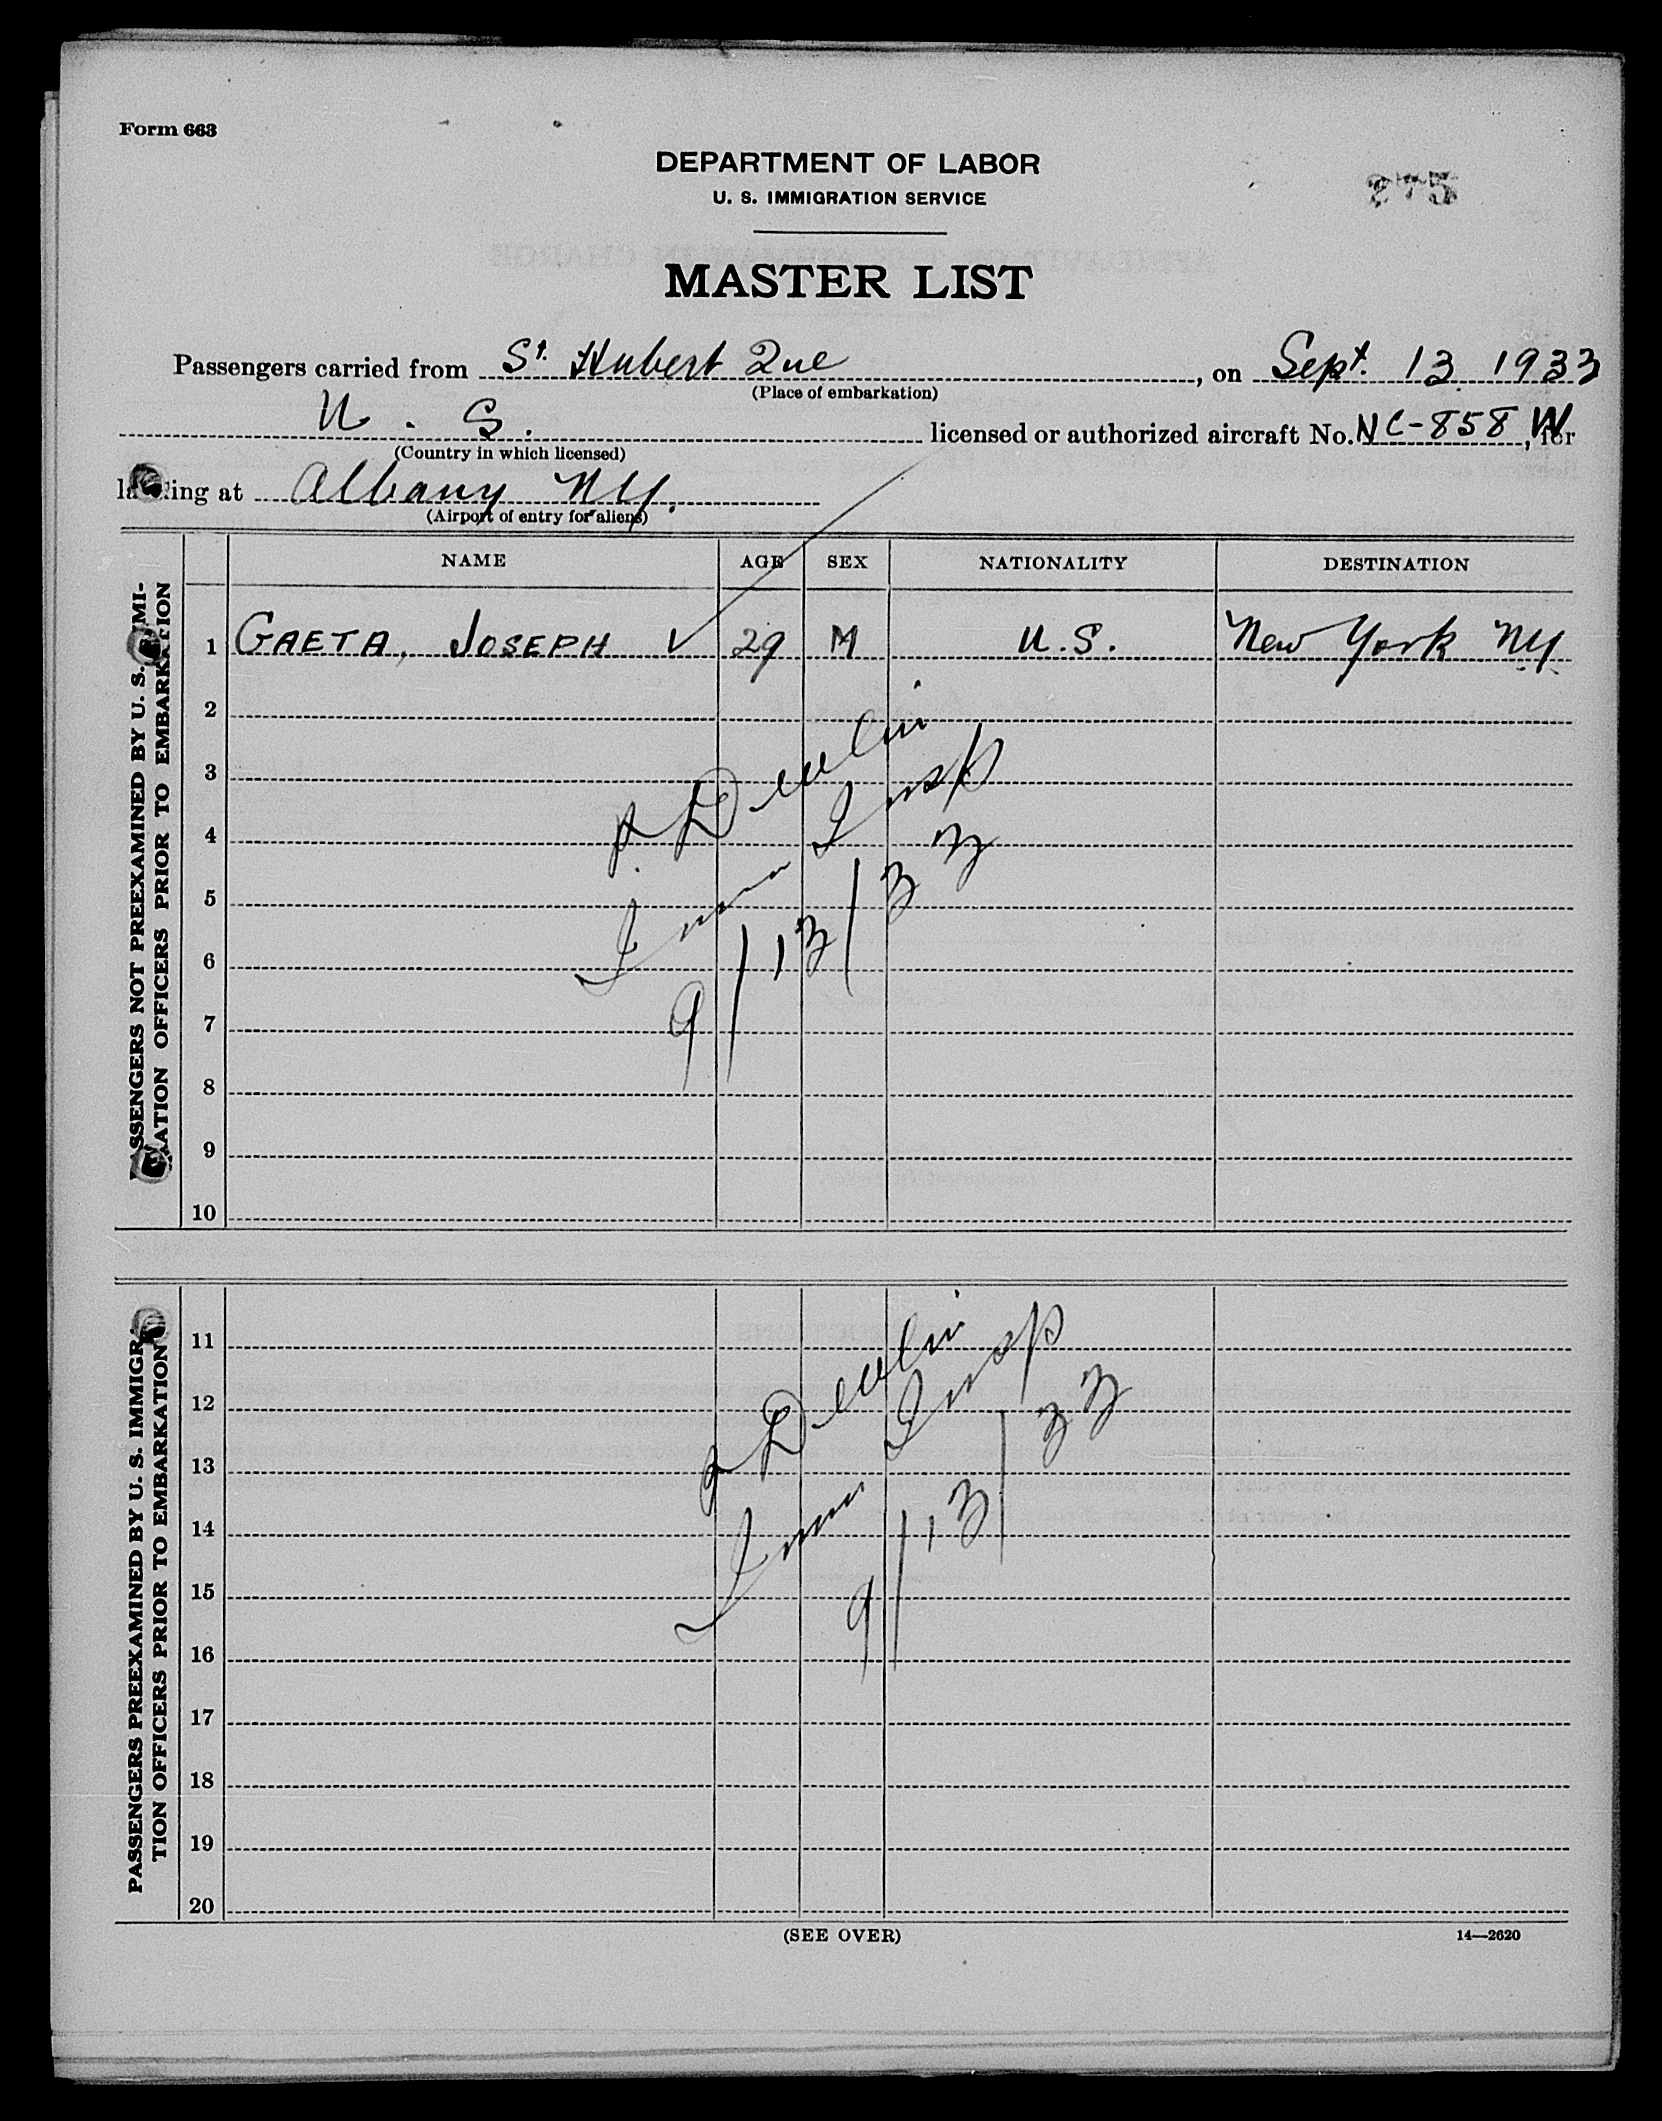 Form 663
DEPARTMENT OF LABOR
U. S. IMMIGRATION SERVICE
275
MASTER LIST
Passengers carried from St. Hubert Que, on Sept. 13 1933
(Place of embarkation)
U. S. licensed or authorized aircraft No. NC-858W, for
(Country in which licensed)
landing at Albany N.Y.
(Airport of entry for aliens)
NAME AGE SEX NATIONALITY DESTINATION
PASSENGERS NOT PREEXAMINED BY U. S. IMMI-
GRATION OFFICERS PRIOR TO EMBARKATION
1 GAETA, JOSEPH V 29 M U.S. New York N.Y.
2
3
4
5
6
7
8
9
10
Devlin
Immn Insp
9/13/33
PASSENGERS PREEXAMINED BY U. S. IMMIGRA-
TION OFFICERS PRIOR TO EMBARKATION
11
12
13
14
15
16
17
18
19
20
Devlin
Immn Insp
9/13/33
(SEE OVER)
14—2620